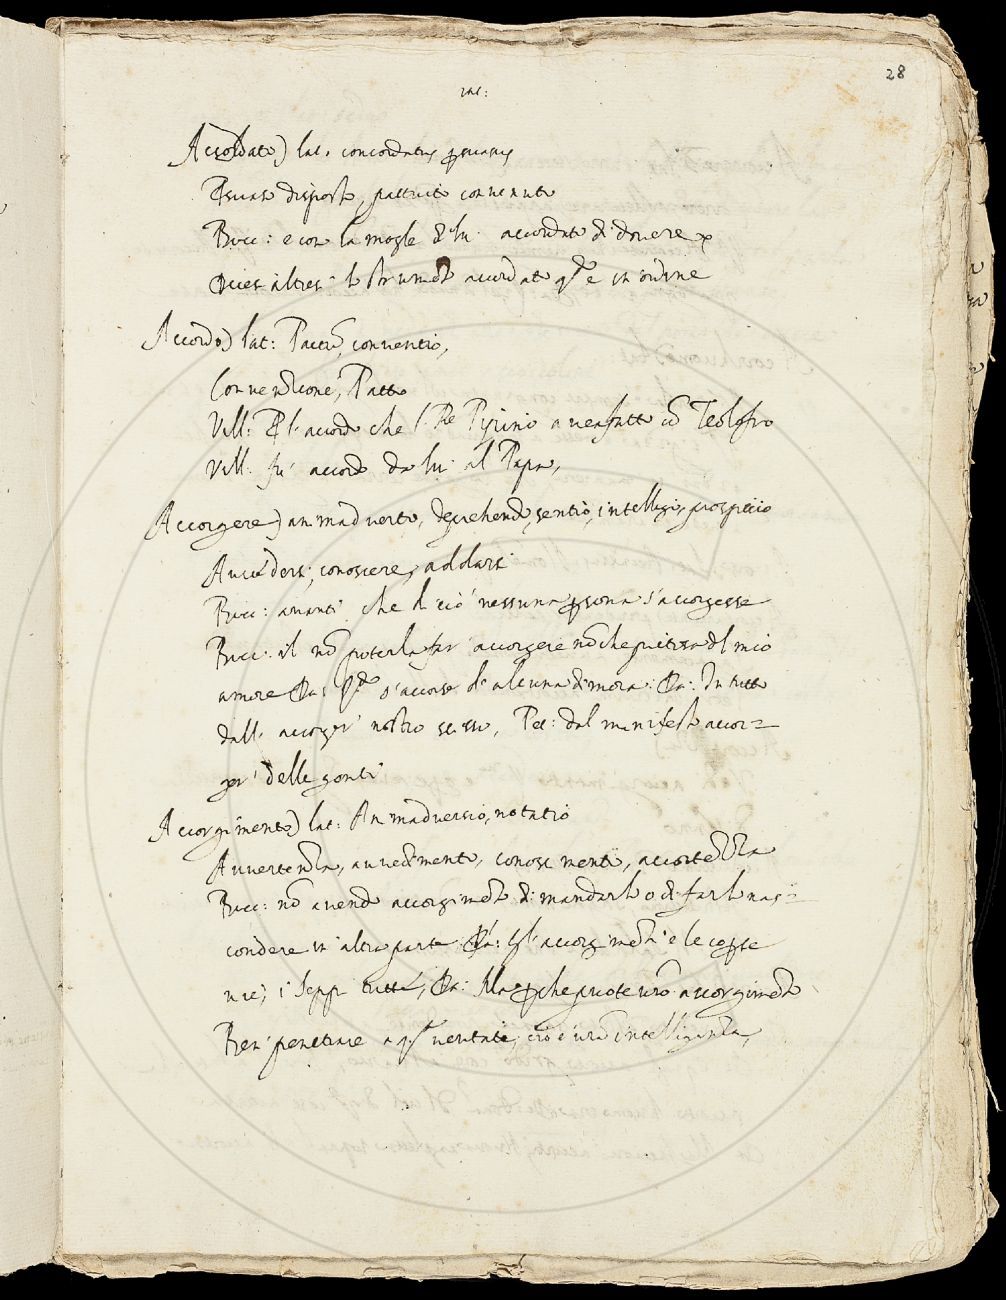 28
Accordato) lat. concordatus psuasus
Psuaso disposto, pattuito convenuto
Bocc: e con la mogle di lui accordato di dovere p
altresi lo strumēto accordato e in ordine
Accordo) lat: Pactū, conventio,
Convenzione, Patto
Vill: P l'accordo che l Re Pipino avea fatto cō Teolofro
Vill. fu accordo da lui al Papa,
Accorgere) animadverto, deprehendo, sentio, intelligo, prospicio
Avvedersi, conoscere, addarsi
Bocc: avanti che di ciò nessuna psona s'accorgesse
Bocc: il nō poterla far accorgere nō che pietosa del mio
amore Da: Qdo s'accorse d'alcuna dimora: Da: In tutto
dall accorger nostro scisso, Pet: dal manifesto accor=
ger delle genti
Accorgimento) lat: Animadversio, notatio
Avvertenza, avvedimento, conoscimento, accortezza
Bocc: nō avendo accorgimēto di mandarlo o di farlo nas=
condere in altra parte Da: Gl'accorgimēti e le copte
vie, i seppi tutte, Da: Ma pche puote vro accorgimēto
Ben penetrare a qsta veritate, ciò è vra intelligenza,